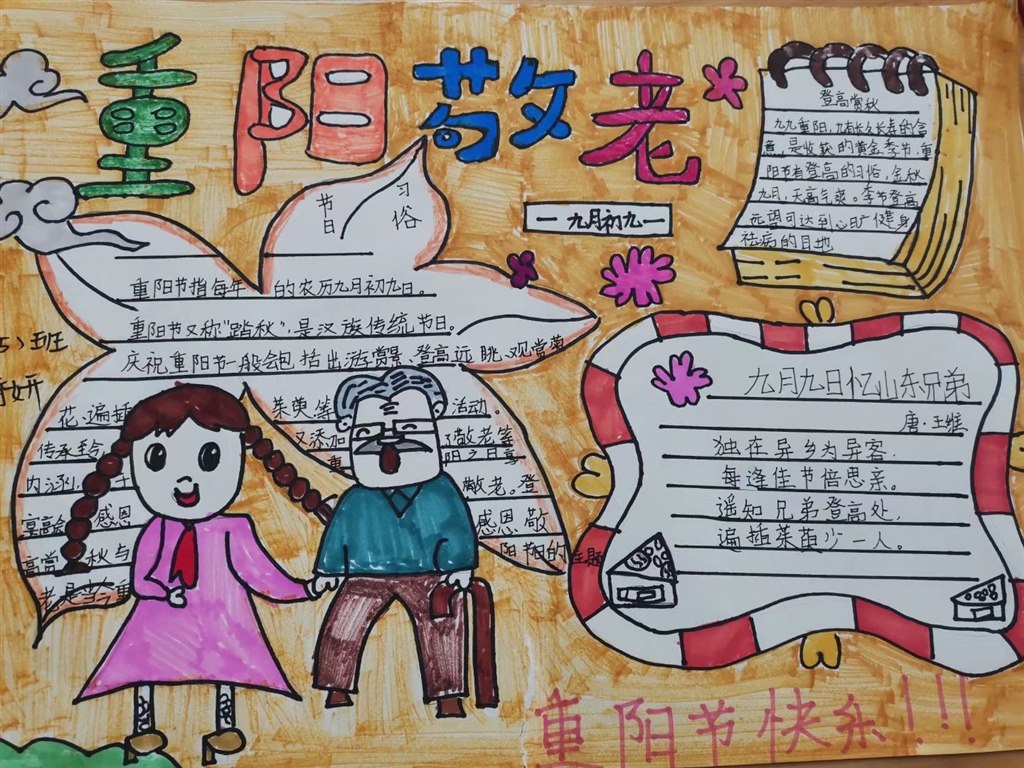 重阳敬老
一九月初九一
登高赏秋
九九重阳,有长久长寿的含
意,是收获的黄金季节,重
阳节有登高的习俗,金秋
九月,天高气爽。季节登高
远望可达到心旷健身
祛病的目地
节日
习俗
重阳节指每年 的农历九月初九日。
重阳节又称"踏秋",是汉族传统节日。
庆祝重阳节一般会包括出游赏景、登高远眺、观赏菊
花、遍插 茱萸等 活动。
传承至 又添加 了敬老等
内涵, 重 阳之日
享高会 感恩 敬老。登
高赏 秋与 感恩 敬
老是当今重 阳节日的 主题
班
妍
九月九日忆山东兄弟
唐·王维
独在异乡为异客,
每逢佳节倍思亲。
遥知兄弟登高处,
遍插茱萸少一人。
重阳节快乐!!!